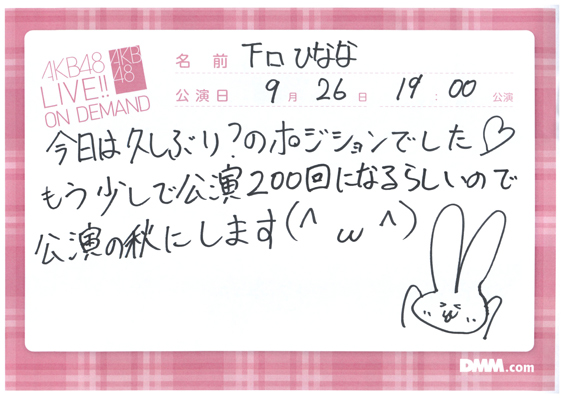 AKB48
LIVE!!
ON DEMAND
AKB
48
名前 下口ひなな
公演日 9月26日 19:00公演
今日は久しぶり?のポジションでした♡
もう少しで公演200回になるらしいので
公演の秋にします(^ω^)
DMM.com